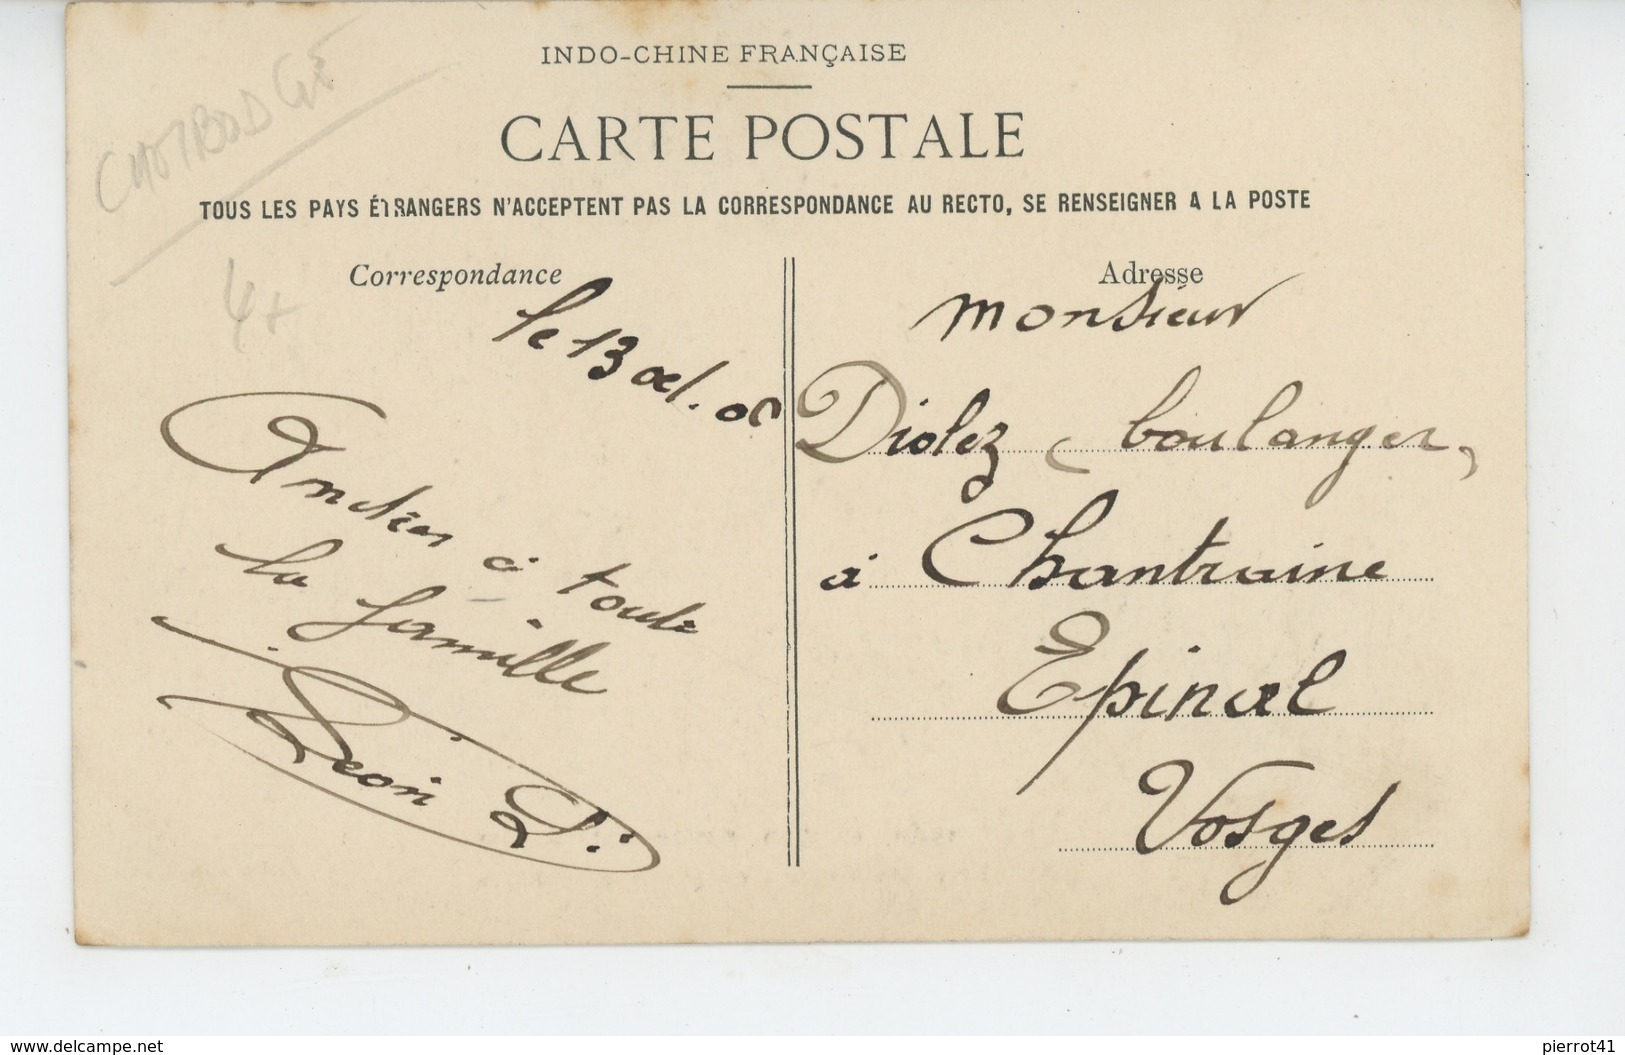 CAMBODGE
INDO-CHINE FRANÇAISE
CARTE POSTALE
TOUS LES PAYS ÉTRANGERS N'ACCEPTENT PAS LA CORRESPONDANCE AU RECTO, SE RENSEIGNER A LA POSTE
4+
Correspondance
le 13 oct. 08
à toute
la famille
Léon D.
Adresse
Monsieur
Diolez, boulanger,
à Chantraine
Epinal
Vosges
www.delcampe.net
pierrot41